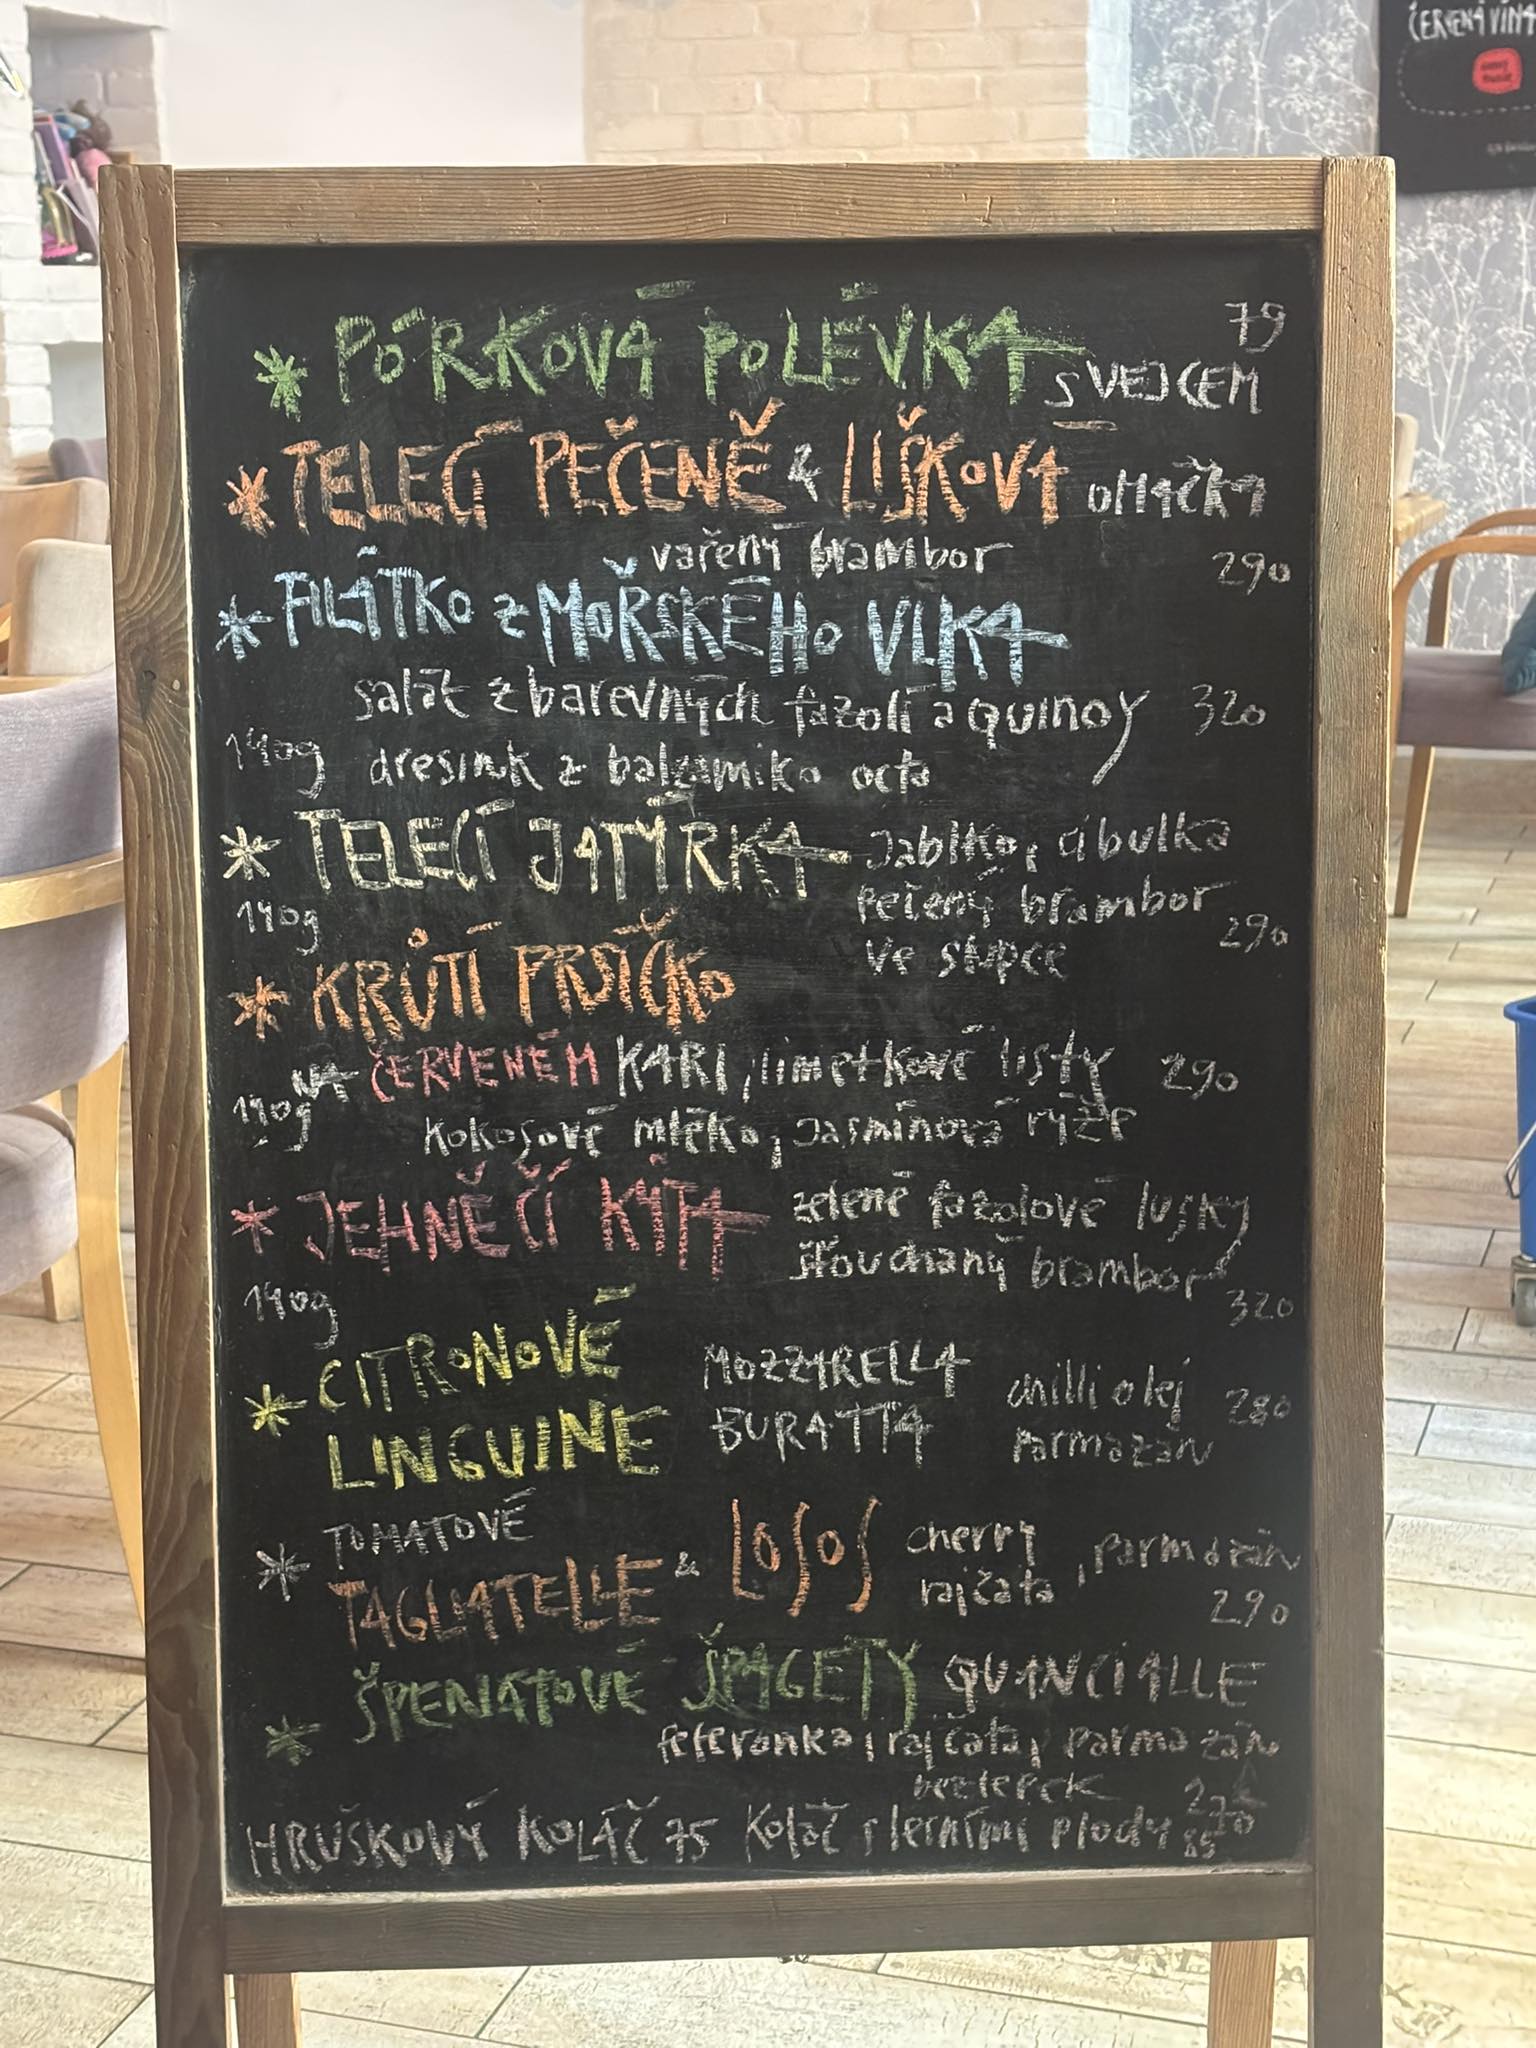 ČERVENÁ VÍNA
* PÓRKOVÁ POLÉVKA 79
S VEJCEM
* TELECÍ PEČENĚ & LIŠKOVÁ OMÁČKA
vařený brambor 290
* FILÁTKO z MOŘSKÉHO VLKA
salát z barevných fazolí a QUINOY 320
140g dresink z balzamiko octa
* TELECÍ JATÝRKA Jablko, cibulka
140g pečený brambor 290
ve slupce
* KRŮTÍ PRSÍČKO
NA ČERVENÉM KARI, limetkové listy 290
140g kokosové mléko, Jasmínová rýže
* JEHNĚČÍ KÝTA zelené fazolové lusky
šťouchaný brambor
140g 320
* CITRONOVÉ MOZZARELLA chilli olej 280
LINGUINE BURATTA parmazán
* TOMATOVÉ
TAGLIATELLE & LOSOS cherry rajčata, parmazán
290
* ŠPENÁTOVÉ ŠPAGETY QUANCIALLE
feferonka, rajčata, parmazán
270
HRUŠKOVÝ KOLÁČ 75 Koláč s lesními plody 85